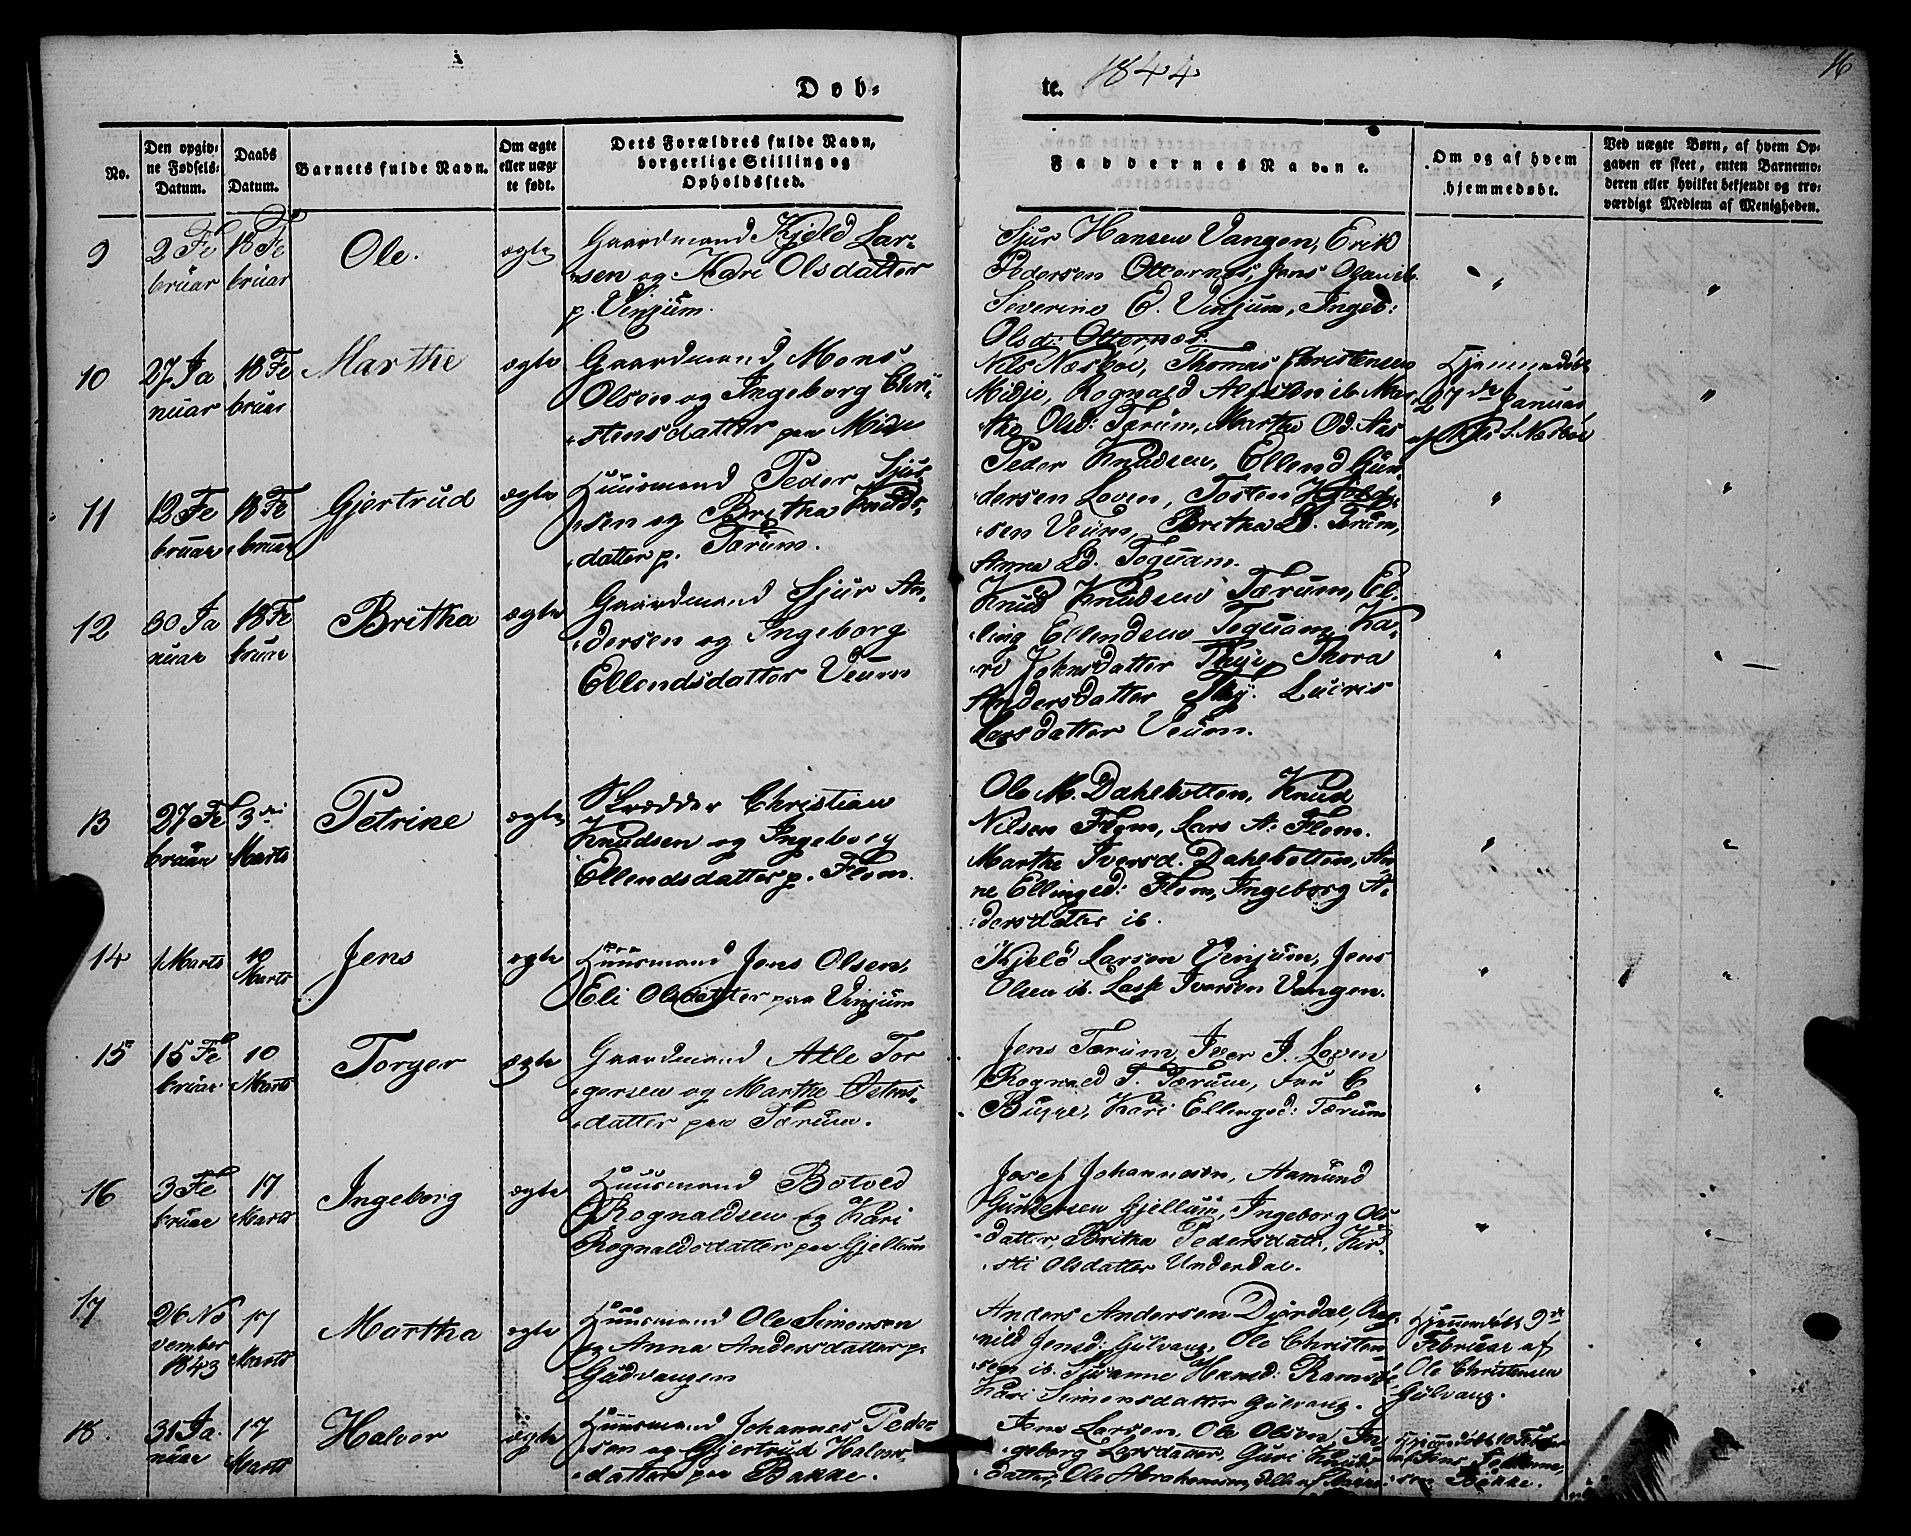 Døb-
te. 1844
16
No.
Den opgiv-
ne Fødsels-
Datum.
Daabs
Datum.
Barnets fulde Navn.
Om ægte
eller uæg-
te født.
Dets Forældres fulde Navn,
borgerlige Stilling og
Opholdssted.
Faddernes Navne.
Om og af hvem
hjemmedøbt.
Ved uægte Børn, af hvem Op-
gaven er skeet, enten Barnemo-
deren eller hvilket bekjendt og tro-
værdigt Medlem af Menigheden.
9
2 Fe
bruar
18 Fe
bruar
Ole.
ægte
Gaardmand Kjeld Lar-
sen og Kari Olsdatter
p. Vinjum.
Sjur Hansen Vangen, Erik
Pedersen Otternes, Jens Olsen ib.
Severine E. Vinjum, Ingeb:
Olsd: Otternes.
"
"
10
27 Ja
nuar
18 Fe
bruar
Marthe
ægte
Gaardmand Mons
Olsen og Ingeborg Chri-
stensdatter paa Midje
Nils Næsbøe, Thomas Christensen
Midje, Rognald
Olsd: Tærum, Martha
Hjemmedøbt
27de Januar
af Nils S. Næsbøe
"
11
12 Fe
bruar
18 Fe
bruar
Gjertrud
ægte
Huusmand Peder Sjur
sen og Britha Knuds-
datter p. Tærum.
Peder Knudsen, Ellend Gun-
dersen Loven, Tosten
sen Veum, Britha Ld. Tærum,
Anna Ld. Toquam.
"
"
12
30 Ja
nuar
18 Fe
bruar
Britha
ægte
Gaardmand Sjur An-
dersen og Ingeborg
Ellendsdatter Veum
Knud Knudsen Tærum, El-
ling Ellendsen Toquam, Ka-
ri Johnsdatter Thora
Andersdatter Lucris
Larsdatter Veum.
"
"
13
27 Fe
bruar
3die
Marts
Petrine
ægte
Skrædder Christian
Knudsen og Ingeborg
Ellendsdatter p. Flom.
Ole M. Dahlbotten, Knud
Nilsen Flom, Lars A. Flom.
Marthe Iversd. Dahlbotten, An-
ne Ellingsd: Flom, Ingeborg A-
dersdatter ib.
"
"
14
1 Marts
10
Marts
Jens
ægte
Huusmand Jens Olsen,
Eli Olsdatter paa Vinjum
Kjeld Larsen Vinjum, Jens
Olsen ib. Lasse Iversen Vangen.
"
"
15
15 Fe
bruar
10
Marts
Torger
ægte
Gaardmand Atle Tor
gersen og Marthe Østens-
datter paa Tærum.
Jens Tærum, Iver J. Loven
Rognald T. Tærum, Fru C
Bugge, Kari Ellingsd: Tærum
"
"
16
3 Fe
bruar
17
Marts
Ingeborg
ægte
Huusmand Botved
Rognaldsen og Kari
Rognaldsdatter paa Gjellum
Josef Johannesen, Aamund
Gundersen Gjellum, Ingeborg Ols
datter Britha Pedersdatt:, Kir-
sti Olsdatter Underdal.
"
"
17
26 No
vember
1843
17
Marts
Martha
ægte
Huusmand Ole Simonsen
og Anna Andersdatter p.
Gudvangen
Anders Andersen Dyrdal, Rag-
nild Jensd: Gulvang, Ole Christen
sen ib. Susanne Hansd: Ramsøe
Kari Simonsdatter Gulvang.
Hjemmedøbt 9de
Februar af
Ole Christensen
Gulvang.
"
18.
31 Ja
nuar
17
Marts
Halvor
ægte
Huusmand Johannes Peder
sen og Gjertrud Halvors-
datter paa Bakke.
Jens Larsen, Ole Olsen, In-
geborg Larsdatter, Guri Knuds
datter, Ole Abrahamsen,
Hjemmedøbt 10 Februar
af Jens
Bakke.